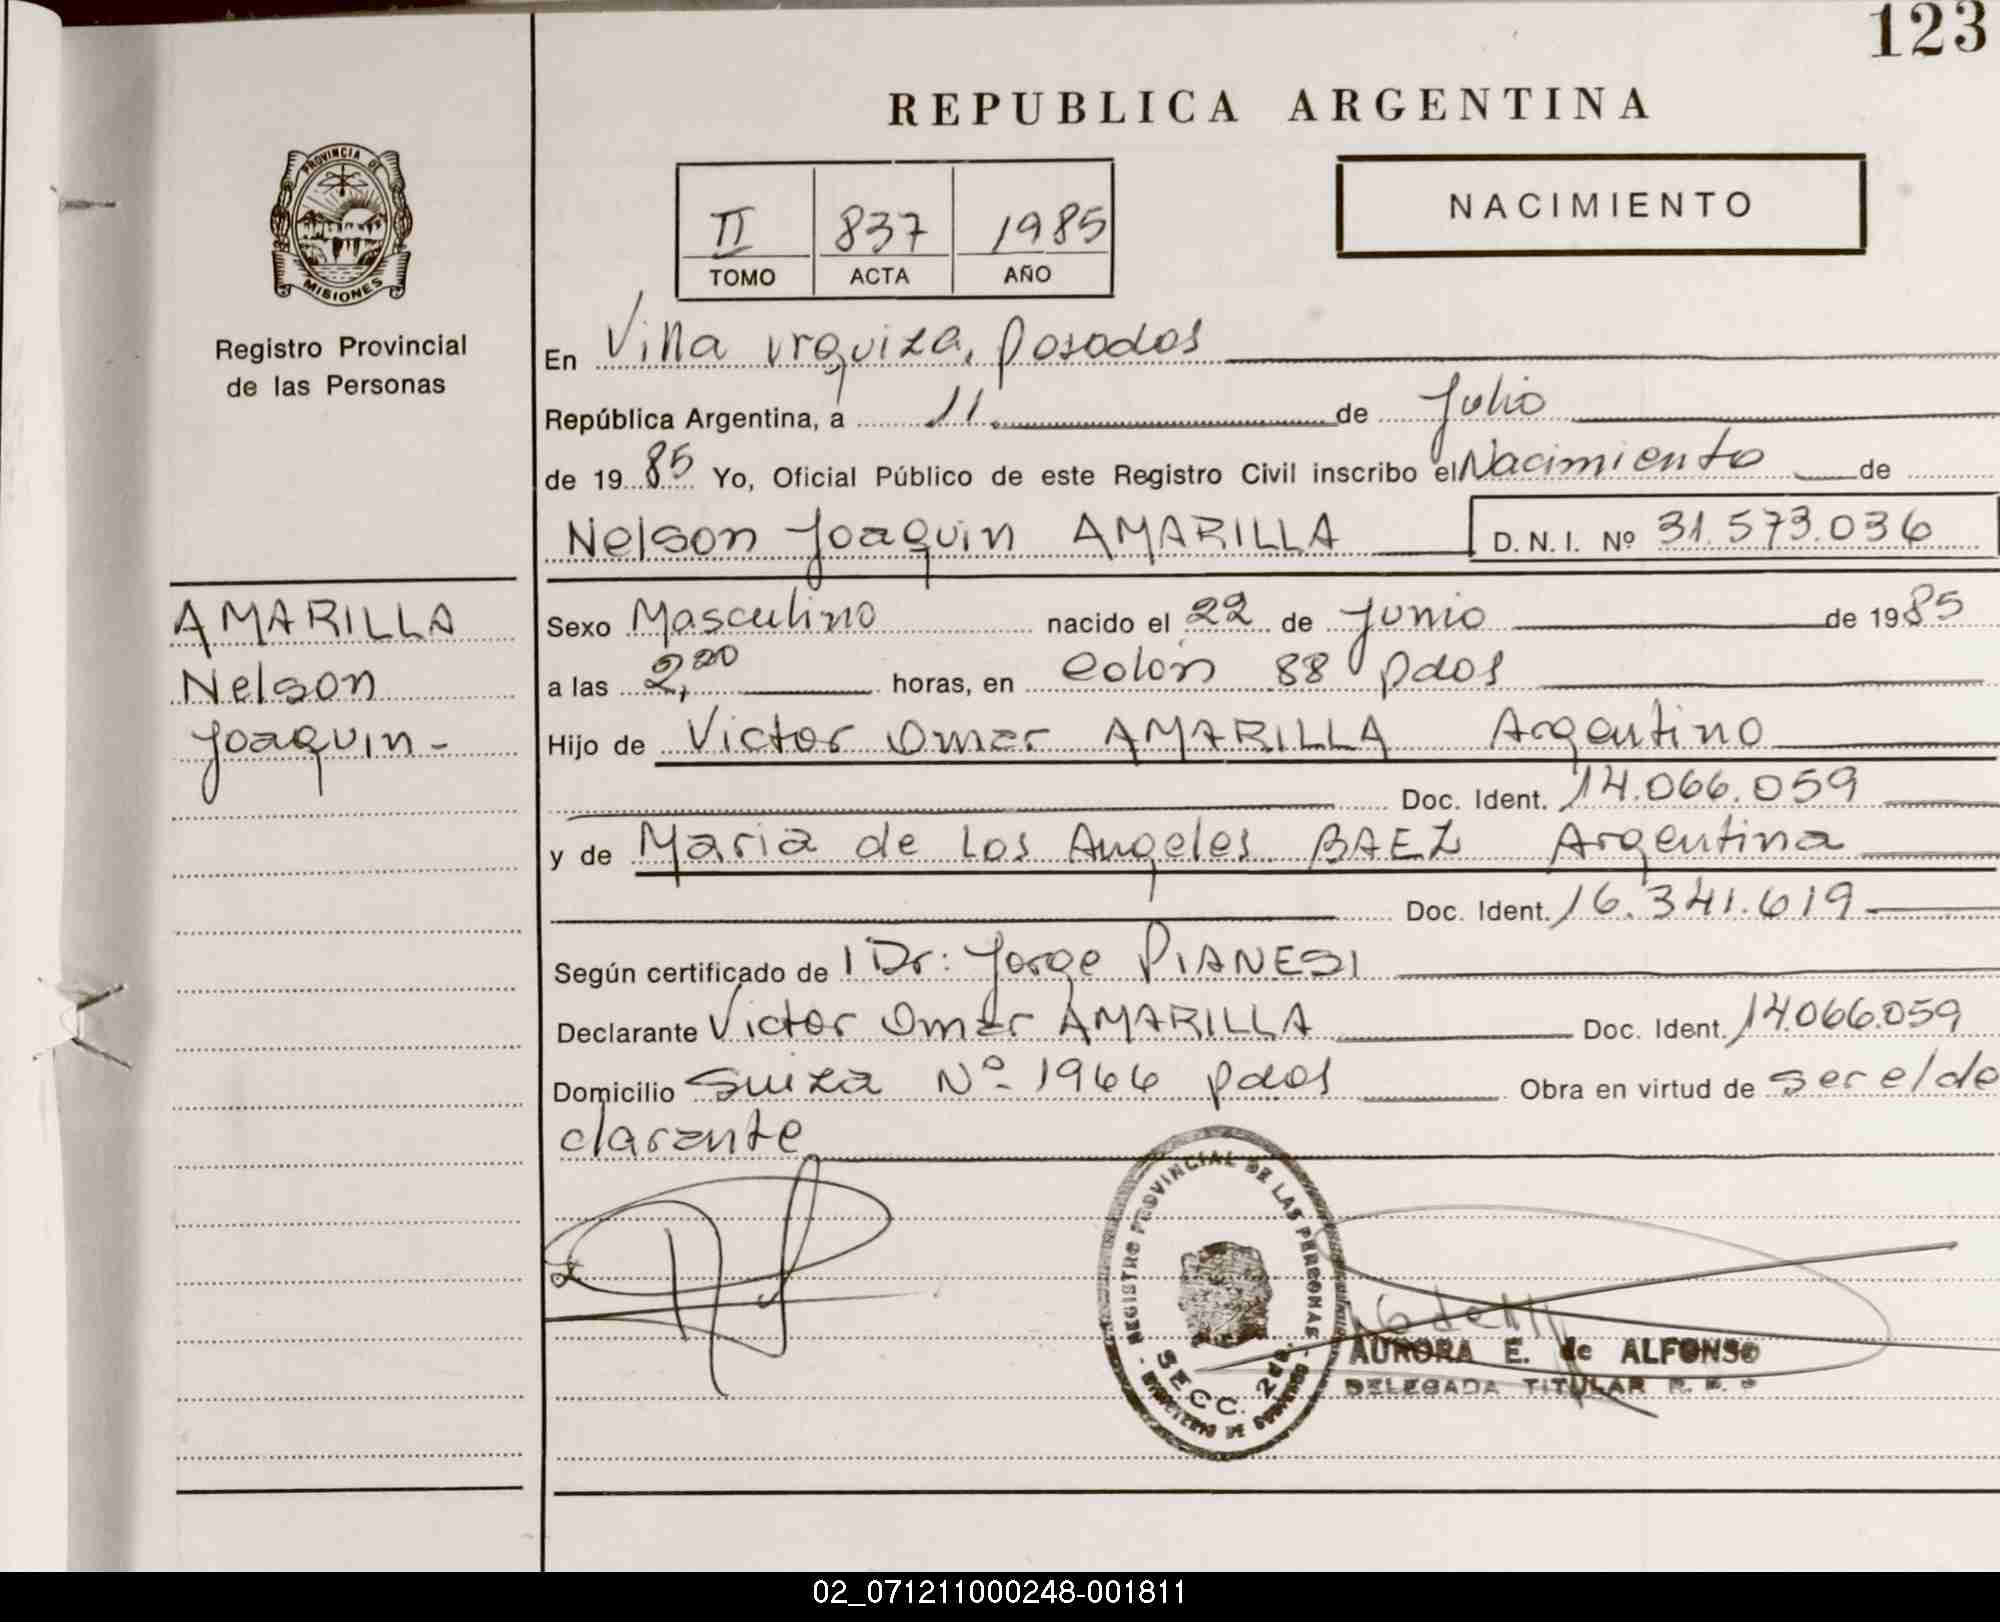 123
REPUBLICA ARGENTINA
PROVINCIA DE
MISIONES
Registro Provincial
de las Personas
II 837 1985
TOMO ACTA AÑO
NACIMIENTO
En Villa Urquiza, Posadas
República Argentina, a 11 de Julio
de 1985 Yo, Oficial Público de este Registro Civil inscribo el Nacimiento de
Nelson Joaquin AMARILLA D.N.I. Nº 31.573.036
AMARILLA
Nelson
Joaquin-
Sexo Masculino nacido el 22 de Junio de 1985
a las 2,20 horas, en Colón 88 pdas
Hijo de Victor Omar AMARILLA Argentino
Doc. Ident. 14.066.059
y de Maria de Los Angeles BAEZ Argentina
Doc. Ident. 16.341.619
Según certificado de Dr: Jorge PIANESI
Declarante Victor Omar AMARILLA Doc. Ident. 14.066.059
Domicilio Suiza Nº 1966 pdas Obra en virtud de ser el de
clarante
REGISTRO PROVINCIAL DE LAS PERSONAS
SECC. 2da.
MINISTERIO DE GOBIERNO
AURORA E. de ALFONSO
DELEGADA TITULAR R. P. P.
02_071211000248-001811